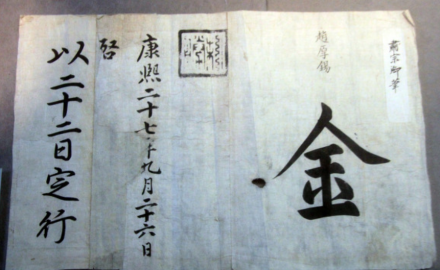 肅宗御筆
趙厚錫
金
康熙二十七年九月二十六日
啓
以二十二日定行